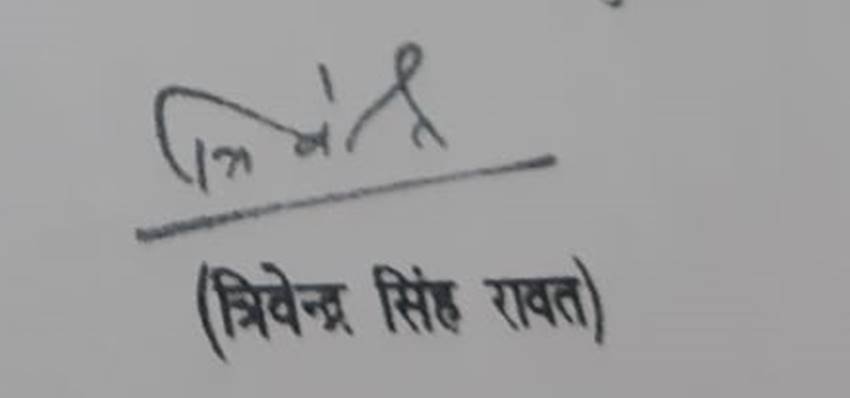 (त्रिवेन्द्र सिंह रावत)